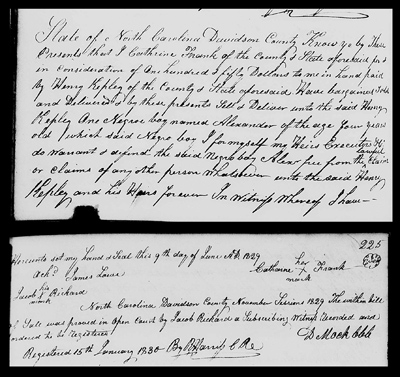 State of North Carolina Davidson County Know ye by These
Presents that I Catherine Frank of the County & State aforesaid for &
in Consideration of One hundred & fifty Dollars to me in hand paid
By Henry Kepley of the County & State aforesaid Have bargained Sold
and Delivered & by these presents Sell & Deliver unto the said Henry
Kepley One Negroe boy named Alexander of the age four years
old, which said Negro boy I for myself my Heirs Executors &c
do Warrant & defend the said Negro boy Alex free from the Claim
lawful
or Claims of any other person Whatsoever unto the said Henry
Kepley and his Heirs forever In Witness Whereof I have
225
Hereunto set my hand & Seal this 9th day of June AD 1829
Ackd James Lowe
her
Catharine X Frank
mark
his
Jacob Richard
mark
North Carolina Davidson County November Sessions 1829 The within bill
of Sale was proved in Open Court by Jacob Richard a Subscribing Witness Recorded and
ordered to be Registered
D Mock Clk
Registered 15th January 1830 By D Harris P Re